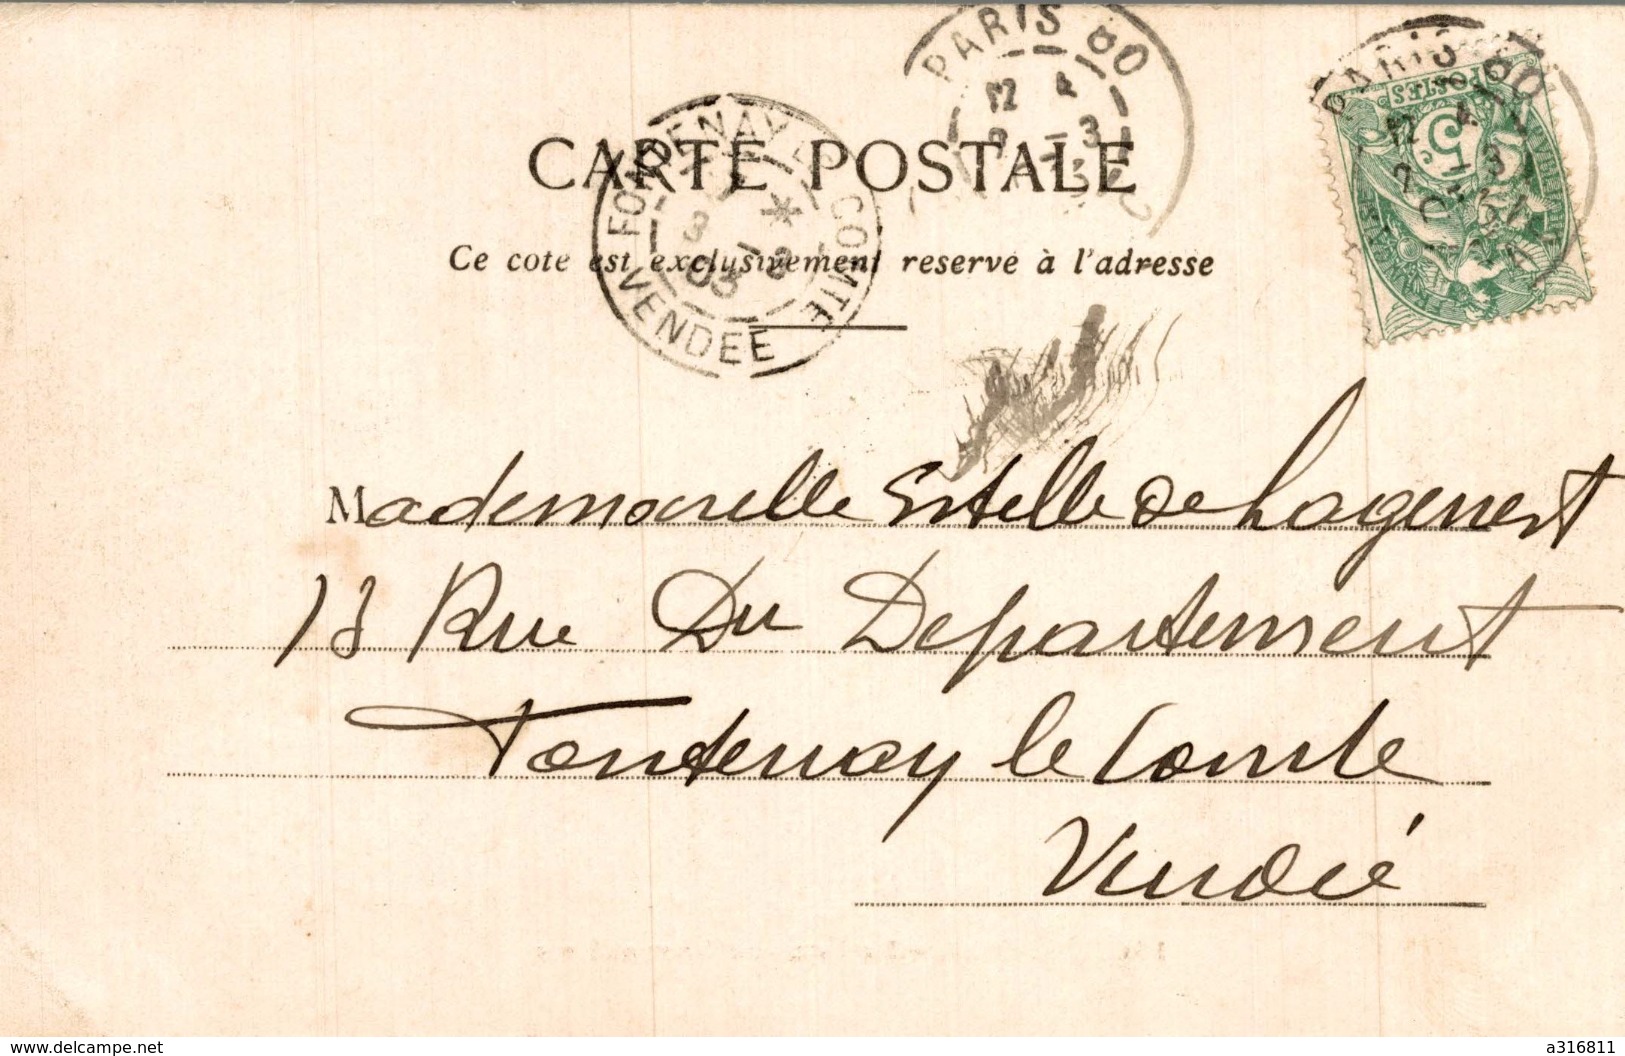 PARIS 80
12 4
-3
PARIS 80
POSTES
5c
FONTENAY LE COMTE
3 -3
03
VENDEE
CARTE POSTALE
Ce coté est exclusivement reservé à l'adresse
Mademoiselle Estelle de
13 Rue Du Departement
Fontenay le Comte
Vendée
www.delcampe.net
a316811